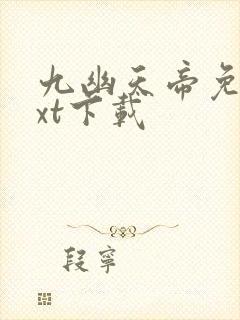 九幽天帝免
xt下载
段宁